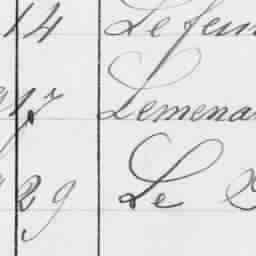 14 Lefeu
17 Lemena
29 Le